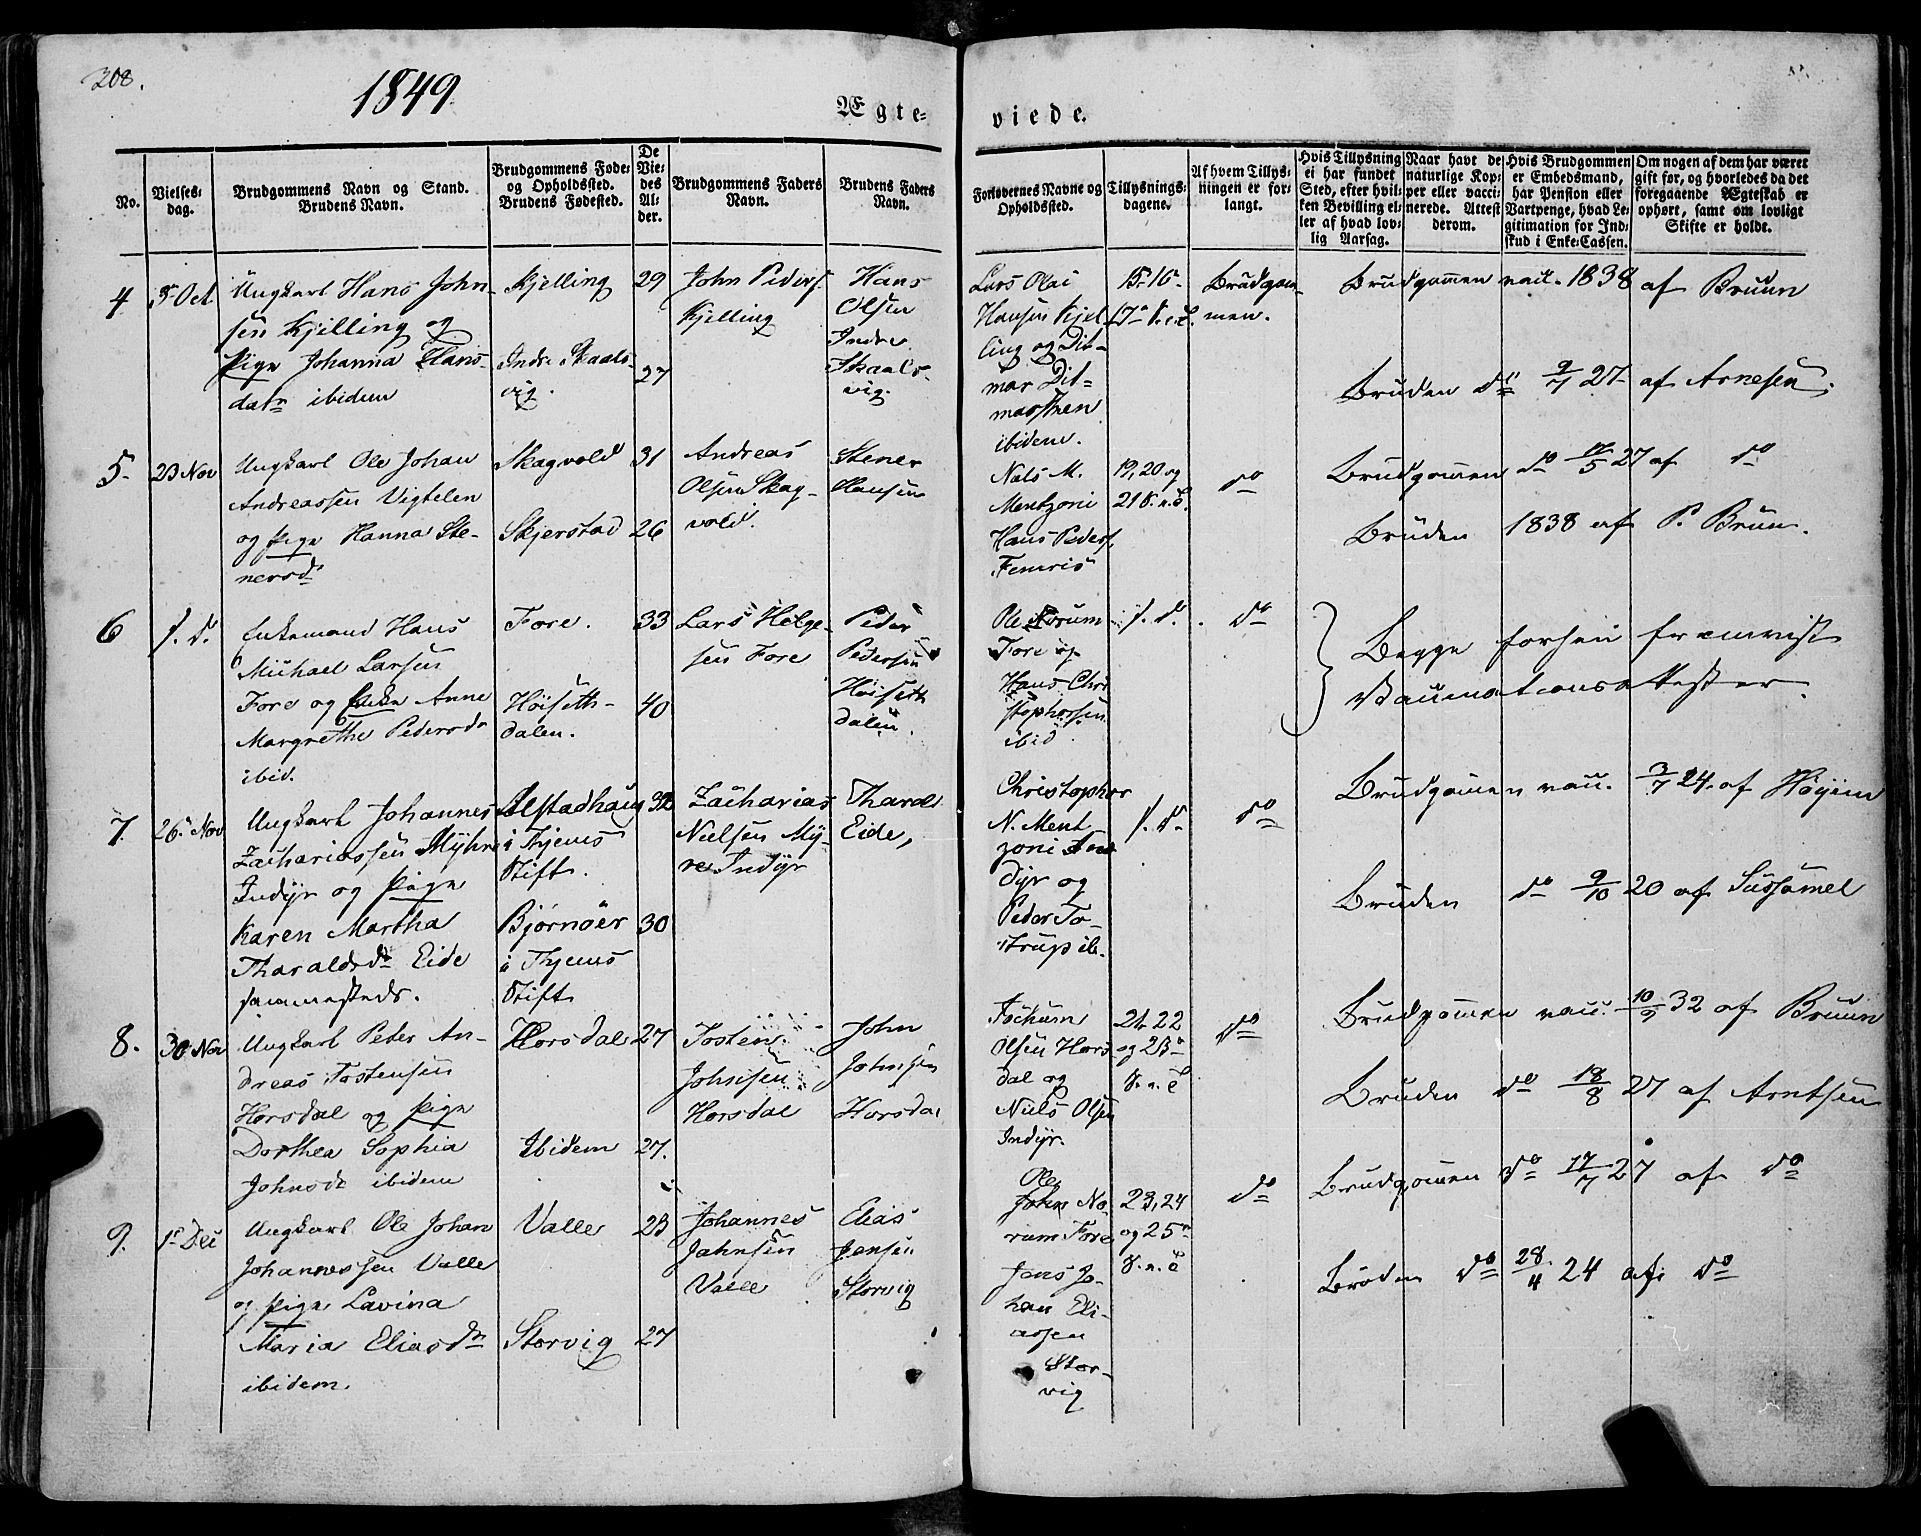 208.
1849
Ægte-
viede.
No.
Vielses-
dag.
Brudgommens Navn og Stand.
Brudens Navn.
Brudgommens Føde-
og Opholdssted.
Brudens Fødested.
De
Vie-
des
Al-
der.
Brudgommens Faders
Navn.
Brudens Faders
Navn.
Forlovernes Navne og
Opholdssted.
Tillysnings-
dagene.
Af hvem Tillys-
ningen er for-
langt.
Hvis Tillysning
ei har fundet
Sted, efter hvil-
ken Bevilling el-
ler af hvad lov-
lig Aarsag.
Naar havt de
naturlige Kop-
per eller vacci-
nerede. Attest
derom.
Hvis Brudgommen
er Embedsmand,
har Pension eller
Vartpenge, hvad Le-
gitimation for Ind-
skud i Enke-Cassen.
Om nogen af dem har været
gift før, og hvorledes da det
foregaaende Ægteskab er
ophørt, samt om lovligt
Skifte er holdt.
4
Oct
Ungkarl Hans John-
sen Kjelling og
Pige Johanna Hans-
datr ibidem
Kjelling
Indre Skaals-
vig.
29
27
John Peders.
Kjelling
Hans
Olsen
Indre
Skaals-
vig.
Lars Olai
Hansen Kjel-
ling og Dit-
mar Dit-
marsen
ibidem.
15. 16.
Brudgom-
men.
Brudgommen vac. 1838 af Bruun
Bruden do 9/7 27 af Arnesen.
5
23 Nov
Ungkarl Ole Johan
Andreassen Vigtelen
og Pige Hanna Ste-
nersd
Skagvold
Skjerstad
31
26
Andreas
Olsen Skag-
vold.
Stener
Hansen
Nals M.
Mentzoni
Hans Peders.
Femris
19, 20 og
21 S. n. T.
do
Brudgommen do 17/5 27 af do
Bruden 1838 af P. Bruun.
6
s. d.
Enkemand Hans
Michael Larsen
Fore og Enke Anne
Margrethe Pedersdr
ibid.
Fore.
Höiseth-
dalen.
33
40
Lars Helge-
sen Fore
Peder
Pedersen
Höiseth
dalen.
Ole Norum
Fore og
Hans Chri
stophersen
ibid.
s. d.
do
Begge forhen fremvist
Vaccinationsattester.
7.
26 Nov
Ungkarl Johannes
Zachariassen Myhre
Indyr og Pige
Karen Martha
Tharaldsdr Eide
sammesteds.
Alstadhaug
i Thjems
Stift.
Bjørnöer
i Thjems
Stift
32
30
Zacharias
Nielsen My-
re Indyr
Tharal
Eide,
Christopher
N. Ment
zoni In
dyr og
Peder To-
strup ib.
s. d.
do
Brudgomen vac. 3/7 24. af Høyem
Bruden do 9/10 20 af Sussamel
8.
30 Nov
Ungkarl Peter An-
dreas Tostensen
Horsdal og Pige
Dorthea Sophia
Johnsdr ibidem
Horsdal
Ibidem
27
27.
Tosten
Johnsen
Horsdal
John
Johnsen
Horsdal
Jochum
Olsen Hors
dal og
Niels Olsen
Indyr.
21. 22
og 23
S. n. T
do
Brudgommen vac. 10/9 32 af Bruun
Bruden do 18/8 27 af Arntsen
9.
1 Dec
Ungkarl Ole Johan
Johannessen Valle
og Pige Lavina
Maria Eliasdr
ibidem.
Valle
Storvig
23
27
Johannes
Jahnsen
Valle
Elias
Jensen
Storvig
Ole
John No-
rum Fore
Jens Jo-
han Eli-
assen
Stor-
vig
23, 24
og 25
S. n. T
do
Brudgommen do 17/7 27 af do
Bruden do 28/4 24 af do